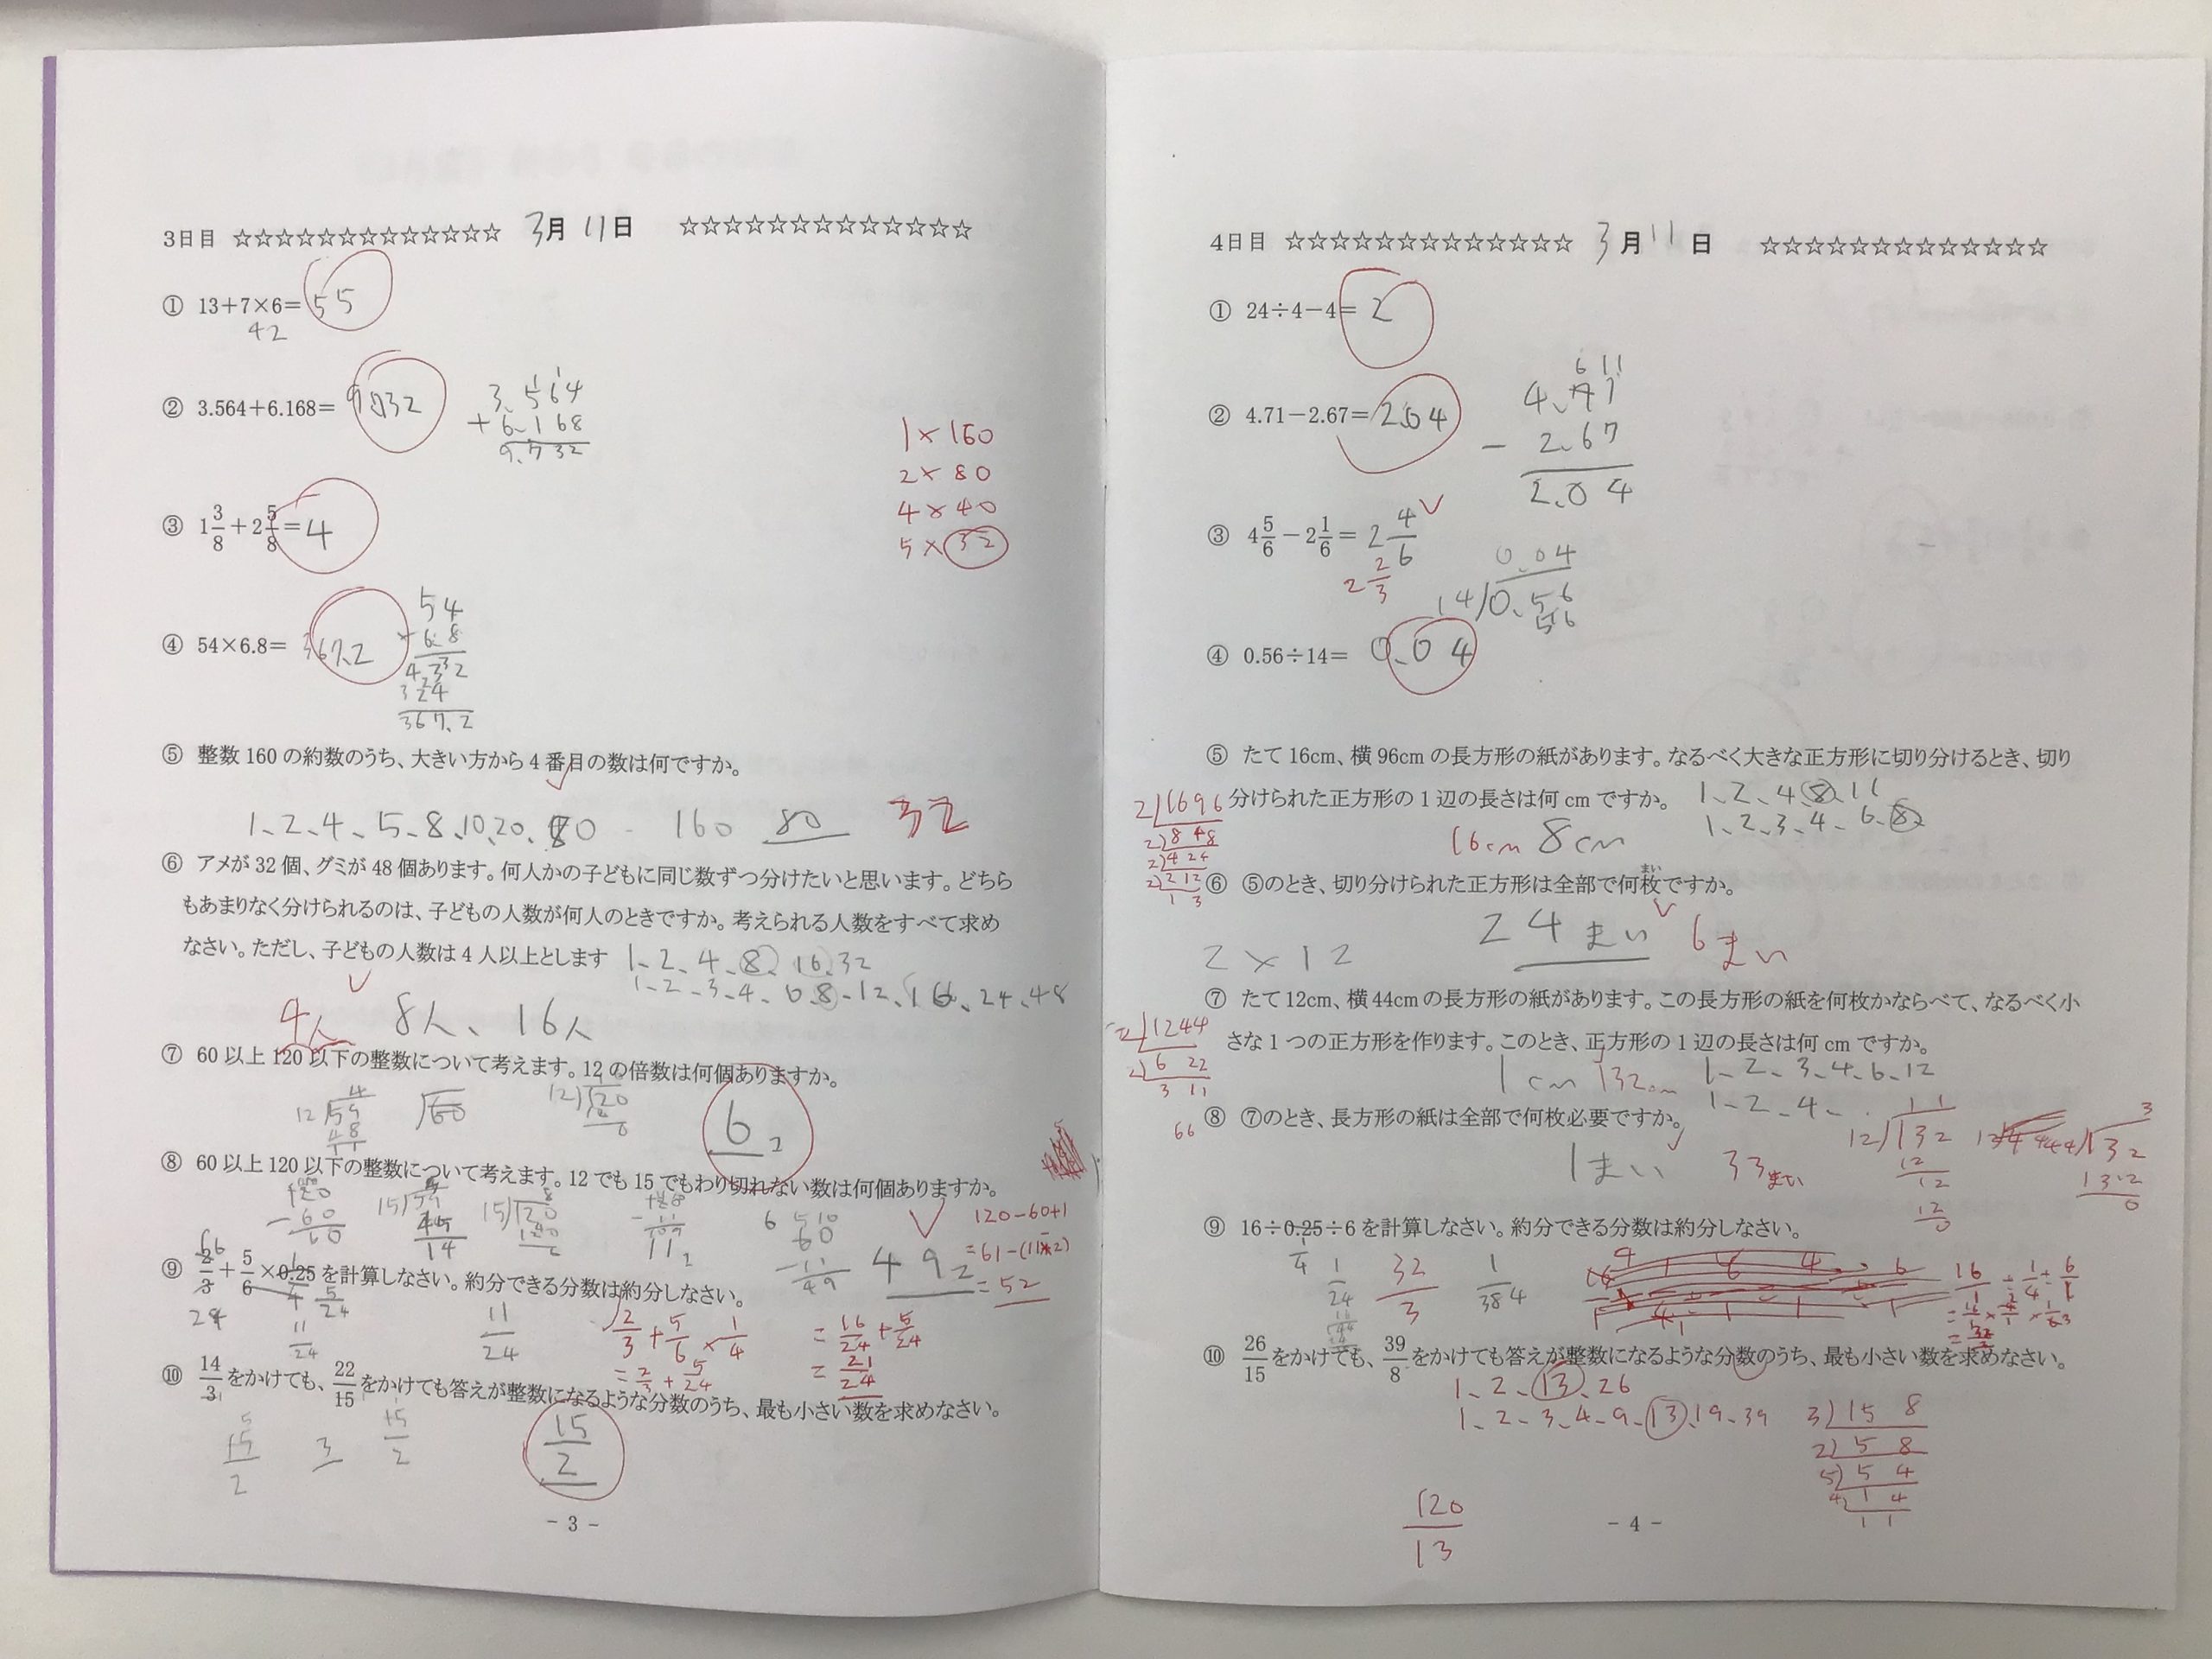 3日目 ☆☆☆☆☆☆☆☆☆☆☆☆☆ 3月11日 ☆☆☆☆☆☆☆☆☆☆☆☆☆☆
① 13+7×6= 55
42
② 3.564+6.168=
3.564
+6.168
9.732
1×160
2×80
4×40
5×32
③ 1 3/8 + 2 5/8 = 4
④ 54×6.8= 367.2
54
×6.8
432
324
367.2
⑤ 整数160の約数のうち、大きい方から4番目の数は何ですか。
1、2、4、5、8、10、20、 160 80 32
⑥ アメが32個、グミが48個あります。何人かの子どもに同じ数ずつ分けたいと思います。どちら
もあまりなく分けられるのは、子どもの人数が何人のときですか。考えられる人数をすべて求め
なさい。ただし、子どもの人数は4人以上とします
1、2、4、8、16、32
1、2、3、4、6、8、12、16、24、48
4人 8人、16人
⑦ 60以上120以下の整数について考えます。12の倍数は何個ありますか。
6
⑧ 60以上120以下の整数について考えます。12でも15でもわり切れない数は何個ありますか。
120-60+1
49
=52
⑨ 2/3 + 5/6 ×0.25を計算しなさい。約分できる分数は約分しなさい。
11/24
2/3 + 5/6 × 1/4 = 16/24 + 5/24
= 2/3 + 5/24 = 21/24
⑩ 14/3 をかけても、22/15 をかけても答えが整数になるような分数のうち、最も小さい数を求めなさい。
15/2 3 15/2
15/2
- 3 -
4日目 ☆☆☆☆☆☆☆☆☆☆☆☆☆☆ 3月11日 ☆☆☆☆☆☆☆☆☆☆☆☆☆☆
① 24÷4-4= 2
② 4.71-2.67= 2.04
4.71
- 2.67
2.04
③ 4 5/6 - 2 1/6 = 2 4/6
2 2/3
0.04
14)0.56
56
④ 0.56÷14= 0.04
⑤ たて16cm、横96cmの長方形の紙があります。なるべく大きな正方形に切り分けるとき、切り
分けられた正方形の1辺の長さは何cmですか。
1、2、4、8、16
1、2、3、4、6、8
16cm 8cm
2)16 96
2)8 48
2)4 24
2)2 12
1 3
⑥ ⑤のとき、切り分けられた正方形は全部で何枚ですか。
まい
2×12 24まい 6まい
⑦ たて12cm、横44cmの長方形の紙があります。この長方形の紙を何枚かならべて、なるべく小
さな1つの正方形を作ります。このとき、正方形の1辺の長さは何cmですか。
2)12 44
2)6 22
3 11
66
1cm 132cm
1、2、3、4、6、12
1、2、4、
⑧ ⑦のとき、長方形の紙は全部で何枚必要ですか。
1まい 33まい
11
12)132
12
12
12
0
3
44)132
132
0
⑨ 16÷0.25÷6を計算しなさい。約分できる分数は約分しなさい。
1/4
1/24 32/3 1/384
16/1 ÷ 1/4 ÷ 6/1
⑩ 26/15 をかけても、39/8 をかけても答えが整数になるような分数のうち、最も小さい数を求めなさい。
1、2、13、26
1、2、3、4、9、13、19、39
3)15 8
2)5 8
5)5 4
4)1 4
1 1
120/13
- 4 -